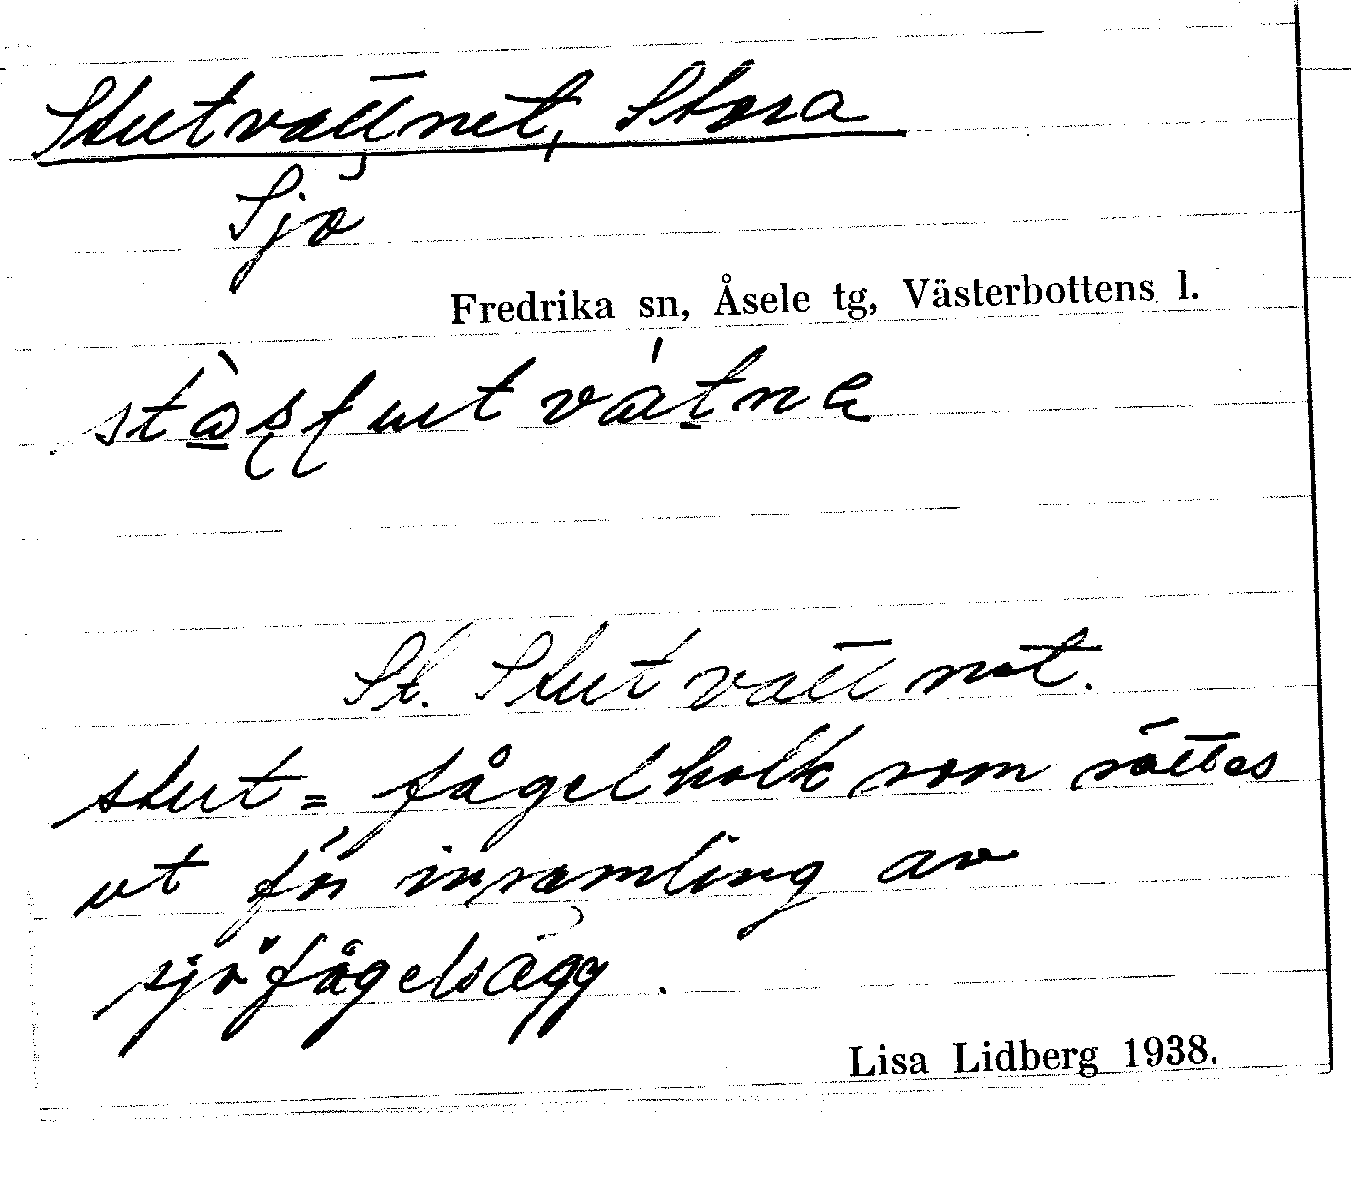 Stutvattnet, Stora
Sjö
Fredrika sn, Åsele tg, Västerbottens l.
St. Stutvattnet.
stut = fågelholk som sättes
ut för insamling av
sjöfågelsägg.
Lisa Lidberg 1938.